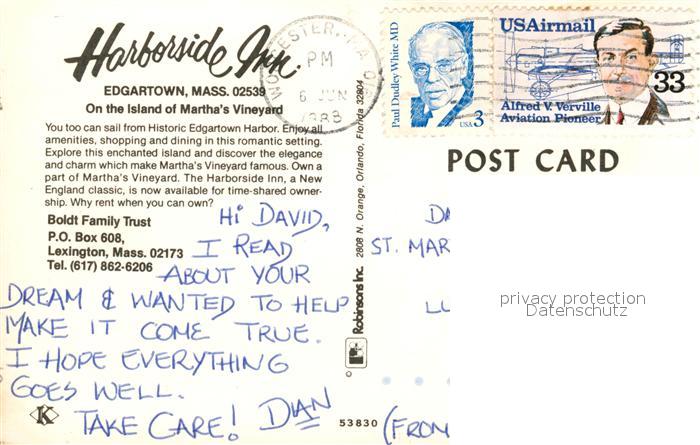 Harborside Inn.
EDGARTOWN, MASS. 02539
On the Island of Martha's Vineyard
You too can sail from Historic Edgartown Harbor. Enjoy all
amenities, shopping and dining in this romantic setting.
Explore this enchanted island and discover the elegance
and charm which make Martha's Vineyard famous. Own a
part of Martha's Vineyard. The Harborside Inn, a New
England classic, is now available for time-shared owner-
ship. Why rent when you can own?
Boldt Family Trust
P.O. Box 608,
Lexington, Mass. 02173
Tel. (617) 862-6206
HI DAVID,
I READ
ABOUT YOUR
DREAM & WANTED TO HELP
MAKE IT COME TRUE.
I HOPE EVERYTHING
GOES WELL.
TAKE CARE! DIAN
K
53830
Robinsons Inc. 2808 N. Orange, Orlando, Florida 32804
PM
6 JUN
Paul Dudley White MD
USA 3
USAirmail
33
Alfred V. Verville
Aviation Pioneer
POST CARD
DA
ST. MAR
LU
(FROM
privacy protection
Datenschutz